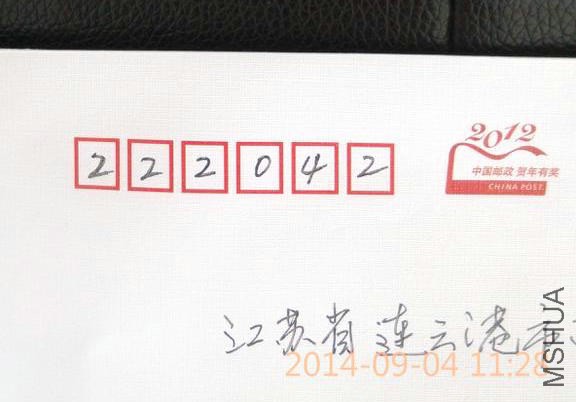 2012
222042
中国邮政 贺年有奖
CHINA POST
江苏省连云港市
2014-09-04 11:28
MSHUA